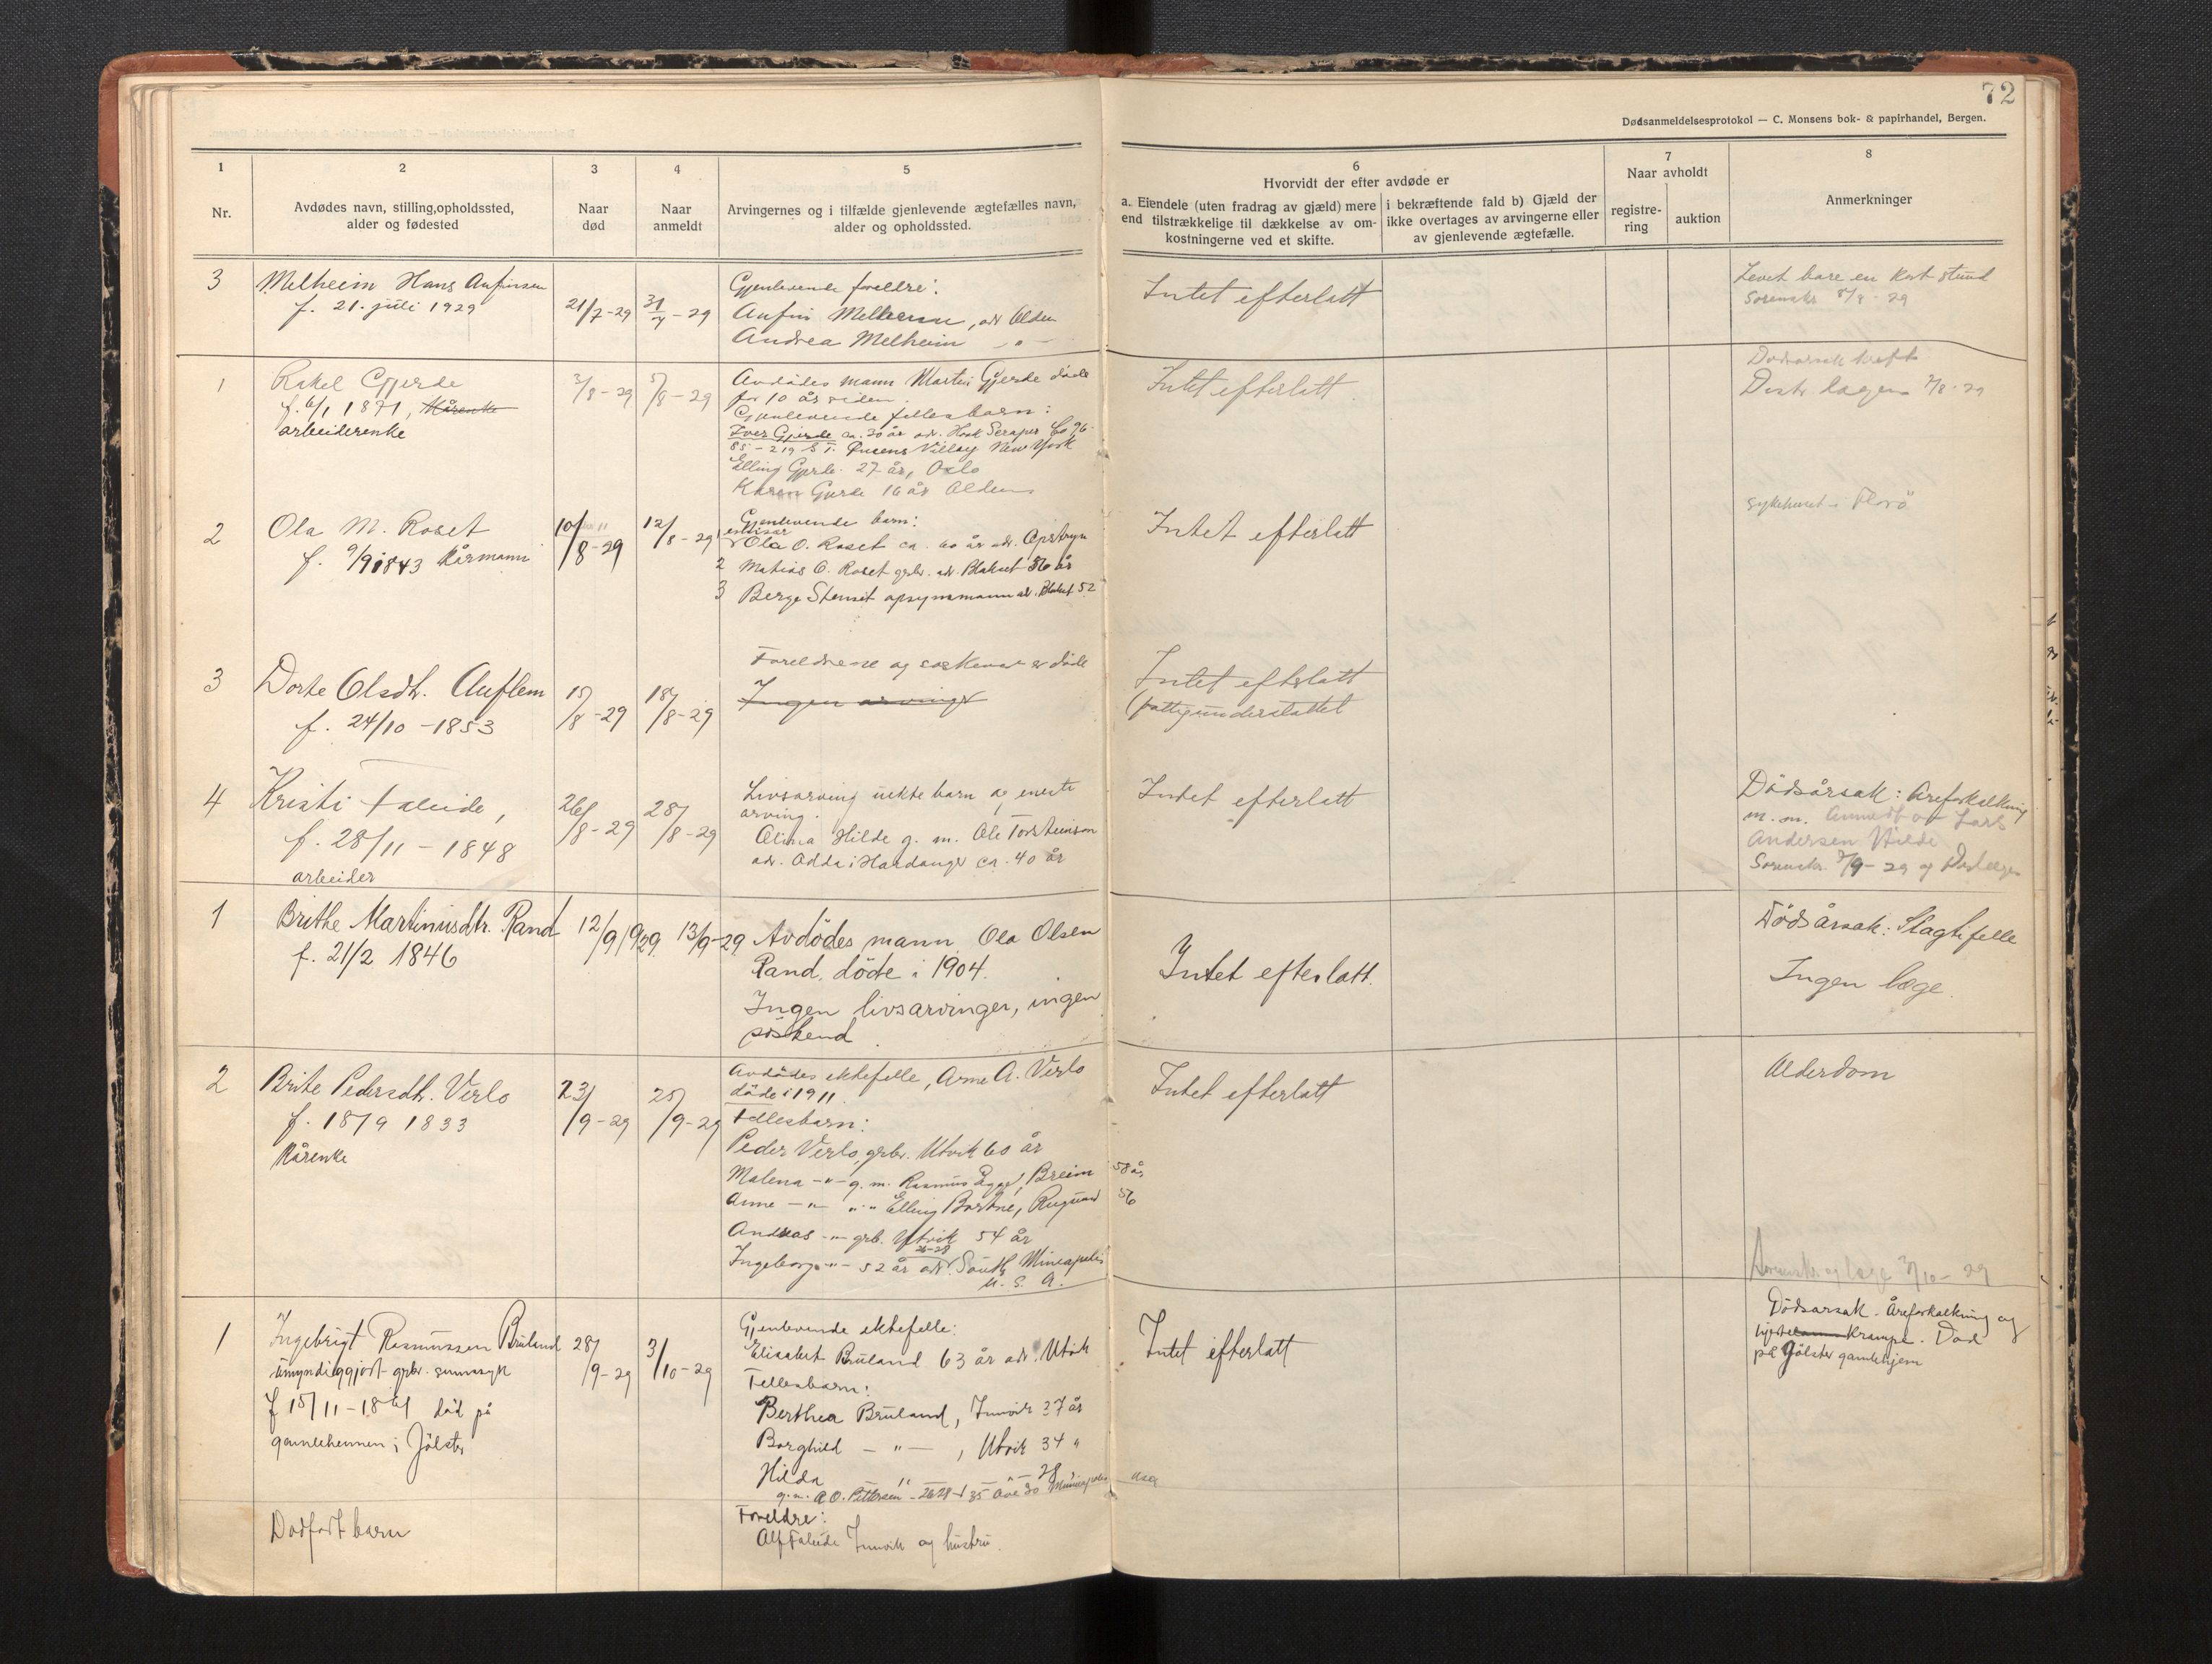 72
Dødsanmeldelsesprotokol — C. Monsens bok- & papirhandel, Bergen.
1
Nr.
2
Avdødes navn, stilling, opholdssted,
alder og fødested
3
Naar
død
4
Naar
anmeldt
5
Arvingernes og i tilfælde gjenlevende ægtefælles navn,
alder og opholdssted.
6
Hvorvidt der efter avdøde er
a. Eiendele (uten fradrag av gjæld) mere
end tilstrækkelige til dækkelse av om-
kostningerne ved et skifte.
i bekræftende fald b) Gjæld der
ikke overtages av arvingerne eller
av gjenlevende ægtefælle.
7
Naar avholdt
registre-
ring
auktion
8
Anmerkninger
3
Melheim Hans Anfinsen
f. 21. juli 1929
21/7-29
31/7-29
Gjenlevende foreldre:
Anfin Melheim, adr Olden
Andrea Melheim — " —
Intet efterlatt
Levet bare en kort stund
Sorenskr. 8/8-29
1
Rakel Gjerde
f. 6/1 1871, Kårenke
arbeiderenke
3/8-29
5/8-29
Avdødes mann Martin Gjerde døde
for 10 år siden.
Gjenlevende fellesbarn:
Iver Gjerde ca. 30 år adr.
Queens Village New York
Elling Gjerde 27 år, Oslo
Karen Gjerde 16 år Olden
Intet efterlatt
Dødsårsak kreft
Distr. lægen 7/8-29
2
Ola M. Roset
f. 9/9 1843 Kårmann
10/8-29
12/8-29
Gjenlevende barn:
Ola O. Roset ca. 60 år adr. Opstryn
2 Matias O. Roset grbr. adr. Blakset 56 år
3 Berge Stenset opsynsmann adr. Blakset 52
Intet efterlatt
Sykehuset i Florö
3
Dorte Olsdt. Auflem
f. 24/10-1853
15/8-29
18/8-29
Foreldrene og søsken er døde
Ingen arvinger
Intet efterlatt
(fattigunderstøttet
4
Kristi Faleide,
f. 28/11-1848
arbeider
26/8-29
28/8-29
Livsarving uekte barn og eneste
arving.
Alina Hilde g. m. Ole Torsteinson
adr. Odda i Hardanger ca. 40 år
Intet efterlatt
Dødsårsak: Åreforkalkning
m. m. Anmeldt av Lars
Andersen Hilde
Sorenskr. 3/9-29 og Distrlægen
1
Brithe Martinusdtr. Rand
f. 21/2 1846
12/9 1929
13/9-29
Avdödes mann Ola Olsen
Rand, döde i 1904.
Ingen livsarvinger, ingen
söskend.
Intet efterlatt.
Dödsårsak: Slagtifelle
Ingen læge.
2
Brite Pedersdtr. Verlo
f. 18/9 1833
Kårenke
23/9-29
25/9-29
Avdødes ektefelle, Arne A. Verlo
døde i 1911.
Fellesbarn:
Peder Verlo, grbr. Utvik 60 år
Malena -"- g. m. Rasmus Egge, Breim 58 år
Anne -"- "-" Elling Bortne, Rugsund 56
Andreas -"- grb. Utvik 54 år
Ingeborg -"- 52 år adr. 26-28 South Mineapolis
U. S. A.
Intet efterlatt
Alderdom
Sorenskr og læge 3/10-29
1
Ingebrigt Rasmussen Bruland
umyndiggjort grbr. sinnssyk
f 15/11-1861 død på
gamlehemmen i Jölster
28/9-29
3/10-29
Gjenlevende ektefelle:
Elisabet Bruland 63 år adr. Utvik
Fellesbarn:
Berthea Bruland, Innvik 37 år
Borghild — " — , Utvik 34 "
Hilda — " — 28
g. m. A O. Pettersen - 2628 - 35 Ave So Mineapolis USA
Intet efterlatt
Dödsårsak. Åreforkalkning og
hjertekrampe. Død
på Jölster gamlehjem
Dødfødt barn
Foreldre:
Alf Faleide Innvik og hustru.